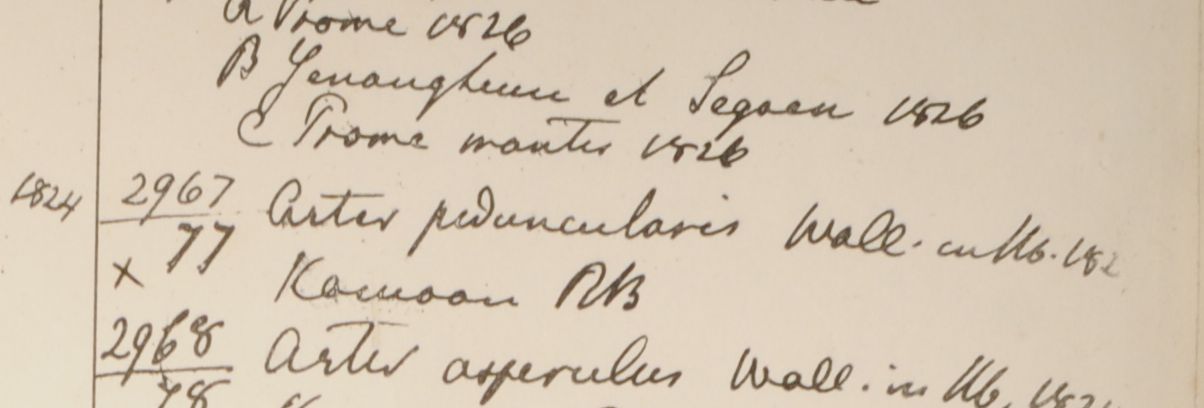 A Prome 1826
B Yenangheun et Segaen 1826
C Prome montes 1826
1824 2967 Aster peduncularis Wall. in Hb. 182
77
x Kamaon RB
2968 Aster asperulus Wall. in Hb. 182
78